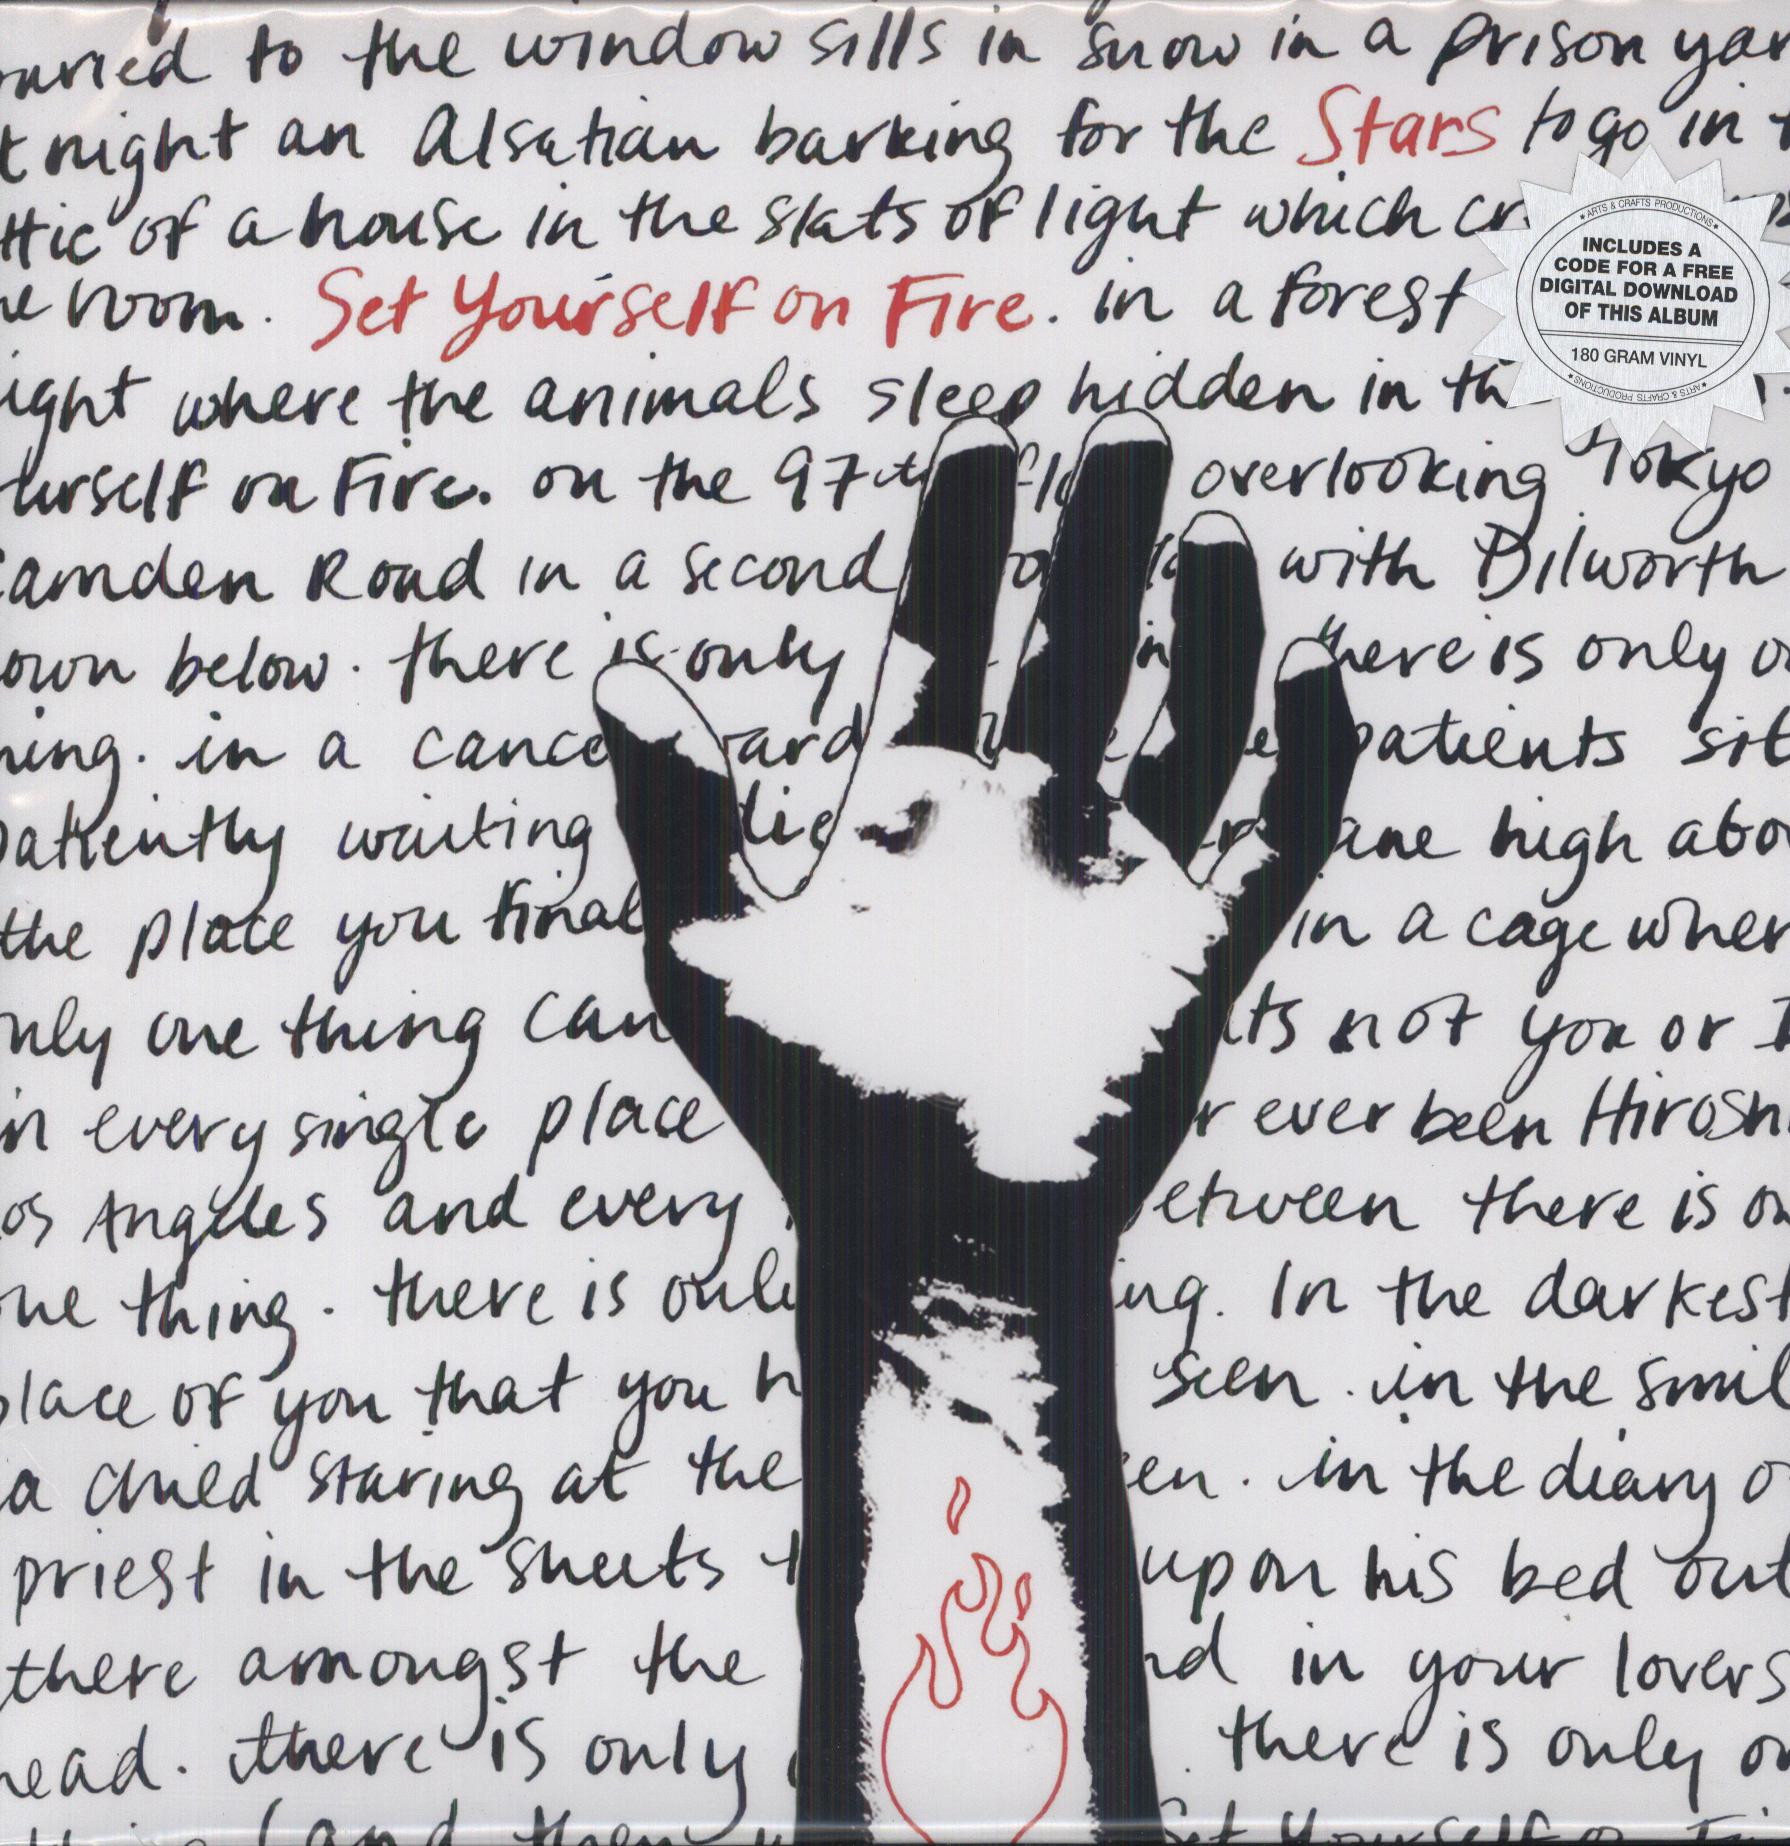 buried to the window sills in snow in a prison yar
t night an Alsatian barking for the Stars to go in t
ttic of a house in the slats of light which cr
he room. Set Yourself on Fire. in a forest
ight where the animals sleep hidden in th
urself on Fire. on the 97th flo overlooking Tokyo
Camden Road in a second with Dilworth
own below. there is only in there is only o
hing. in a cance ard patients sit
patiently waiting die ane high abo
the place you final in a cage wher
nly one thing can its not you or I
in every single place r ever been Hiroshi
os Angeles and every etween there is on
one thing. there is only ing. In the darkest
place of you that you h seen. in the smil
a child staring at the een. in the diary o
priest in the sheets t upon his bed out
there amongst the nd in your lovers
head. there is only there is only on
(and then Set Yourself on Fi
ARTS & CRAFTS PRODUCTIONS
INCLUDES A
CODE FOR A FREE
DIGITAL DOWNLOAD
OF THIS ALBUM
180 GRAM VINYL
ARTS & CRAFTS PRODUCTIONS